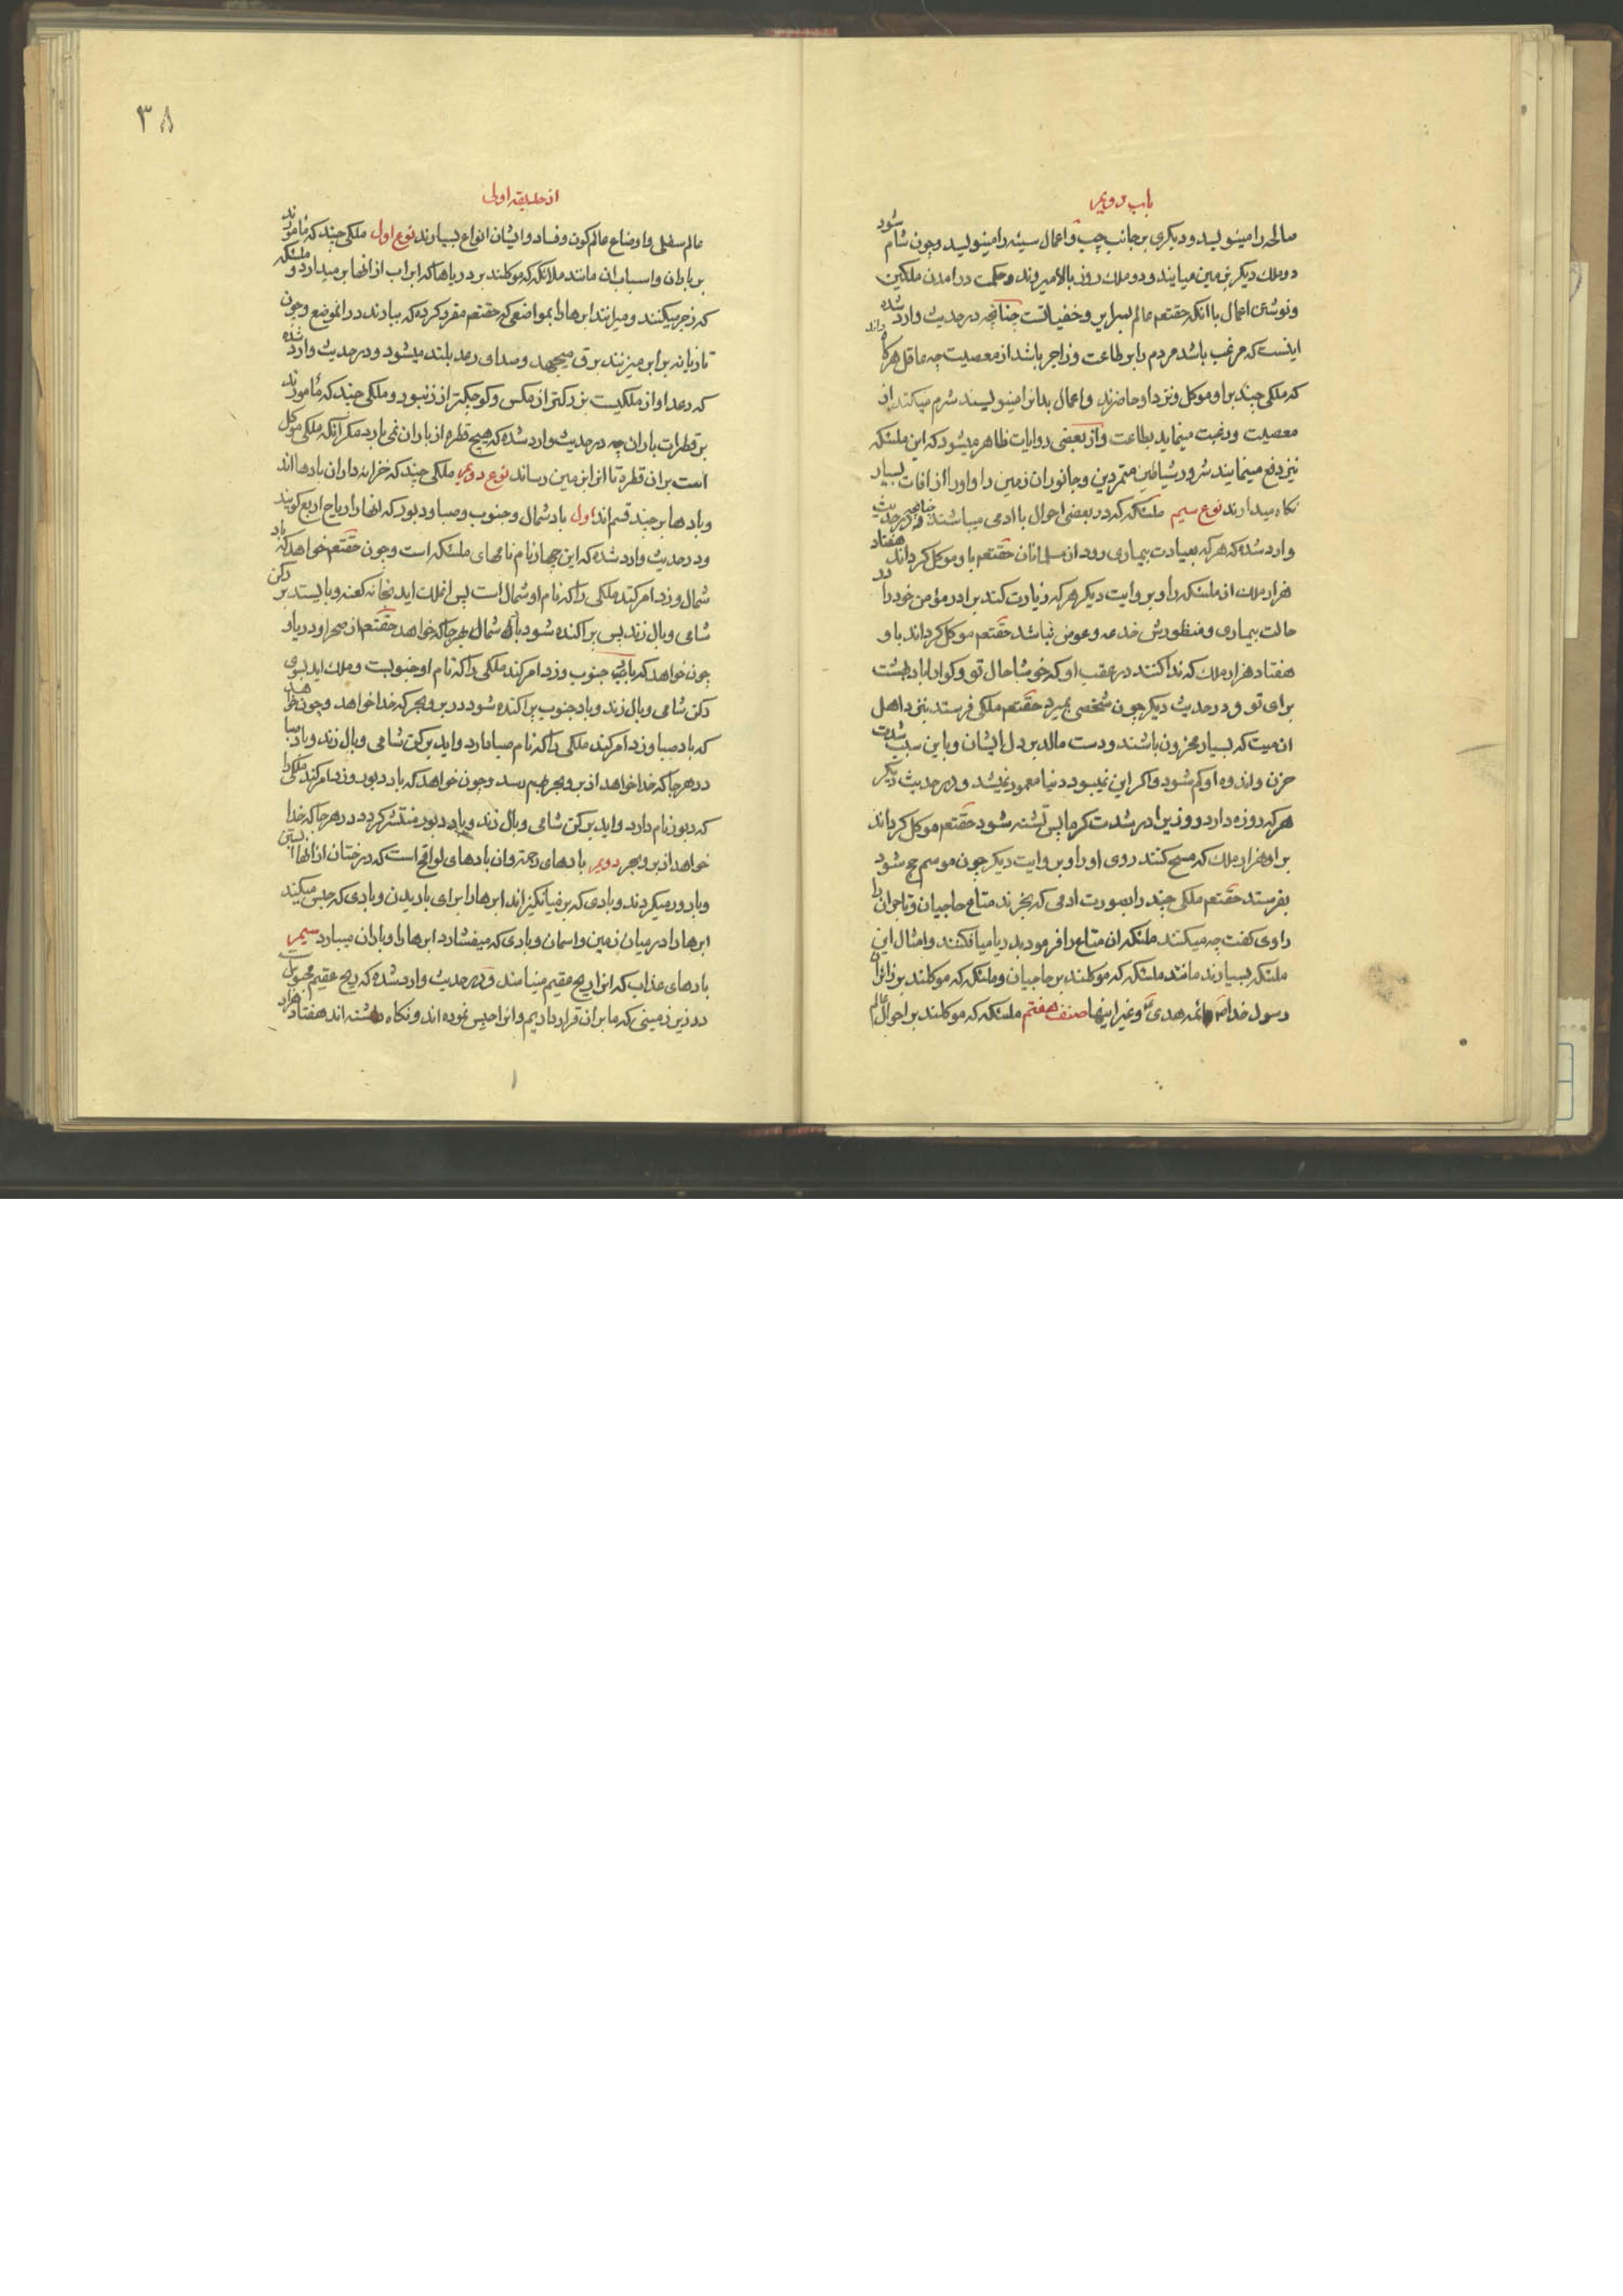 باب دویم
صالحه را مینویسد و دیکری بر جانب چپ و اعمال سیئه را مینویسد و چون شام شود
دو ملك دیکر بزمین میایند و دو ملك روز بالا میروند و حکمت در امدن ملکین
و نوشتن اعمال با انکه حقتعم عالم بسرایر و خفیاتست چنانچه در حدیث وارد شده
اینست که مرغب باشد مردم را بر طاعت و زاجر باشد از معصیت چه عاقل هرکاه داند
که ملکی چند بر او موکل و نزد او حاضرند و اعمال بد انرا مینویسند شرم میکند از
معصیت و رغبت مینماید بطاعت و از بعضی روایات ظاهر میشود که این ملئکه
نیز دفع مینمایند شرور شیاطین متمردین و جانوران زمین را و او را از افات بسیار
نکاه میدارند نوع سیم ملئکه که در بعضی احوال با ادمی میباشند چنانچه در حدیث
وارد شده که هر که بعیادت بیماری رود از مسلمانان حقتعم باو موکل کرداند هفتاد
هزار ملك از ملئکه را و بروایت دیکر هر که زیارت کند برادر مؤمن خود را در
حالت بیماری و منظورش خدعه و عوض نباشد حقتعم موکل کرداند باو
هفتاد هزار ملك که ندا کنند در عقب او که خوشا حال تو و کوارا باد بهشت
برای تو و در حدیث دیکر چون شخصی بمیرد حقتعم ملکی فرستد بنزد اهل
ان میت که بسیار محزون باشند و دست مالد بر دل ایشان و باین سبب شدت
حزن و اندوه او کم شود و اکر این نمیبود دنیا معمور نمیشد و در حدیث دیکر
هر که روزه دارد روزی را در شدت کرما پس تشنه شود حقتعم موکل کرداند
بر او هزار ملك که مسح کنند روی او را و بروایت دیکر چون موسم حج شود
بفرستد حقتعم ملکی چند را بصورت ادمی که بخرند متاع حاجیان و تاجران را
راوی کفت چه میکنند ملئکه ان متاع را فرمود بدریا میافکنند و امثال این
ملئکه بسیارند مانند ملئکه که موکلند بر حاجیان و ملئکه که موکلند بر زائران
رسول خدا ص و ائمه هدی ع و غیر اینها صنف هفتم ملئکه که موکلند بر احوال عالم
از حدیقه اولی
عالم سفلی و اوضاع عالم کون و فساد و ایشان انواع بسیارند نوع اول ملکی چند که مأمورند
بر باران و اسباب ان مانند ملائکه که موکلند بر دریاها که ابر اب از انها برمیدارد و ملئکه
که زجر میکنند و میرانند ابرها را بمواضعی که حقتعم مقرر کرده که ببارند در انموضع و چون
تازیانه بر ابر میزنند برق میجهد و صدای رعد بلند میشود و در حدیث وارد شده
که رعد اواز ملکیست بزرکتر از مکس و کوچکتر از زنبور و ملکی چند که مأمورند
بر قطرات باران چه در حدیث وارد شده که هیچ قطره از باران نمی بارد مکر آنکه ملکی موکل
است بران قطره تا انرا بزمین رساند نوع دویم ملکی چند که خزانه داران بادها اند
و بادها بر چند قسم اند اول باد شمال و جنوب و صبا و دبور که انها را ریاح اربع کویند
و در حدیث وارد شده که این چهار نام نامهای ملئکه است و چون حقتعم خواهد که باد
شمال وزد امر کند ملکی را که نام او شمال است پس انملك اید بخانه کعبه و بایستد بر رکن
شامی و بال زند پس پراکنده شود باد شمال بهر جا که خواهد حقتعم از صحرا و دریا و
چون خواهد که باد جنوب وزد امر کند ملکی را که نام او جنوبست و ملك اید بسوی
رکن شامی و بال زند و باد جنوب پراکنده شود در بر و بحر که خدا خواهد و چون خواهد
که باد صبا وزد امر کند ملکی را که نام صبا دارد و اید بر رکن شامی و بال زند و باد صبا
در هر جا که خدا خواهد از بر و بحر بهم رسد و چون خواهد که باد دبور وزد امر کند ملکی را
که دبور نام دارد و اید بر رکن شامی و بال زند و باد دبور منتشر کردد در هر جا که خدا
خواهد از بر و بحر دویم بادهای رحمت و ان بادهای لواقح است که درختان از انها ابستن
و بارور میکردند و بادی که بر میانکیزاند ابرها را برای باریدن و بادی که حبس میکند
ابرها را در میان زمین و اسمان و بادی که میفشارد ابرها را و باران میبارد سیم
بادهای عذاب که انرا ریح عقیم مینامند و در حدیث وارد شده که ریح عقیم محبوس است
در زیر زمینی که ما بران قرار داریم و انرا حبس نموده اند و نکاه داشته اند هفتاد هزار
۳۸